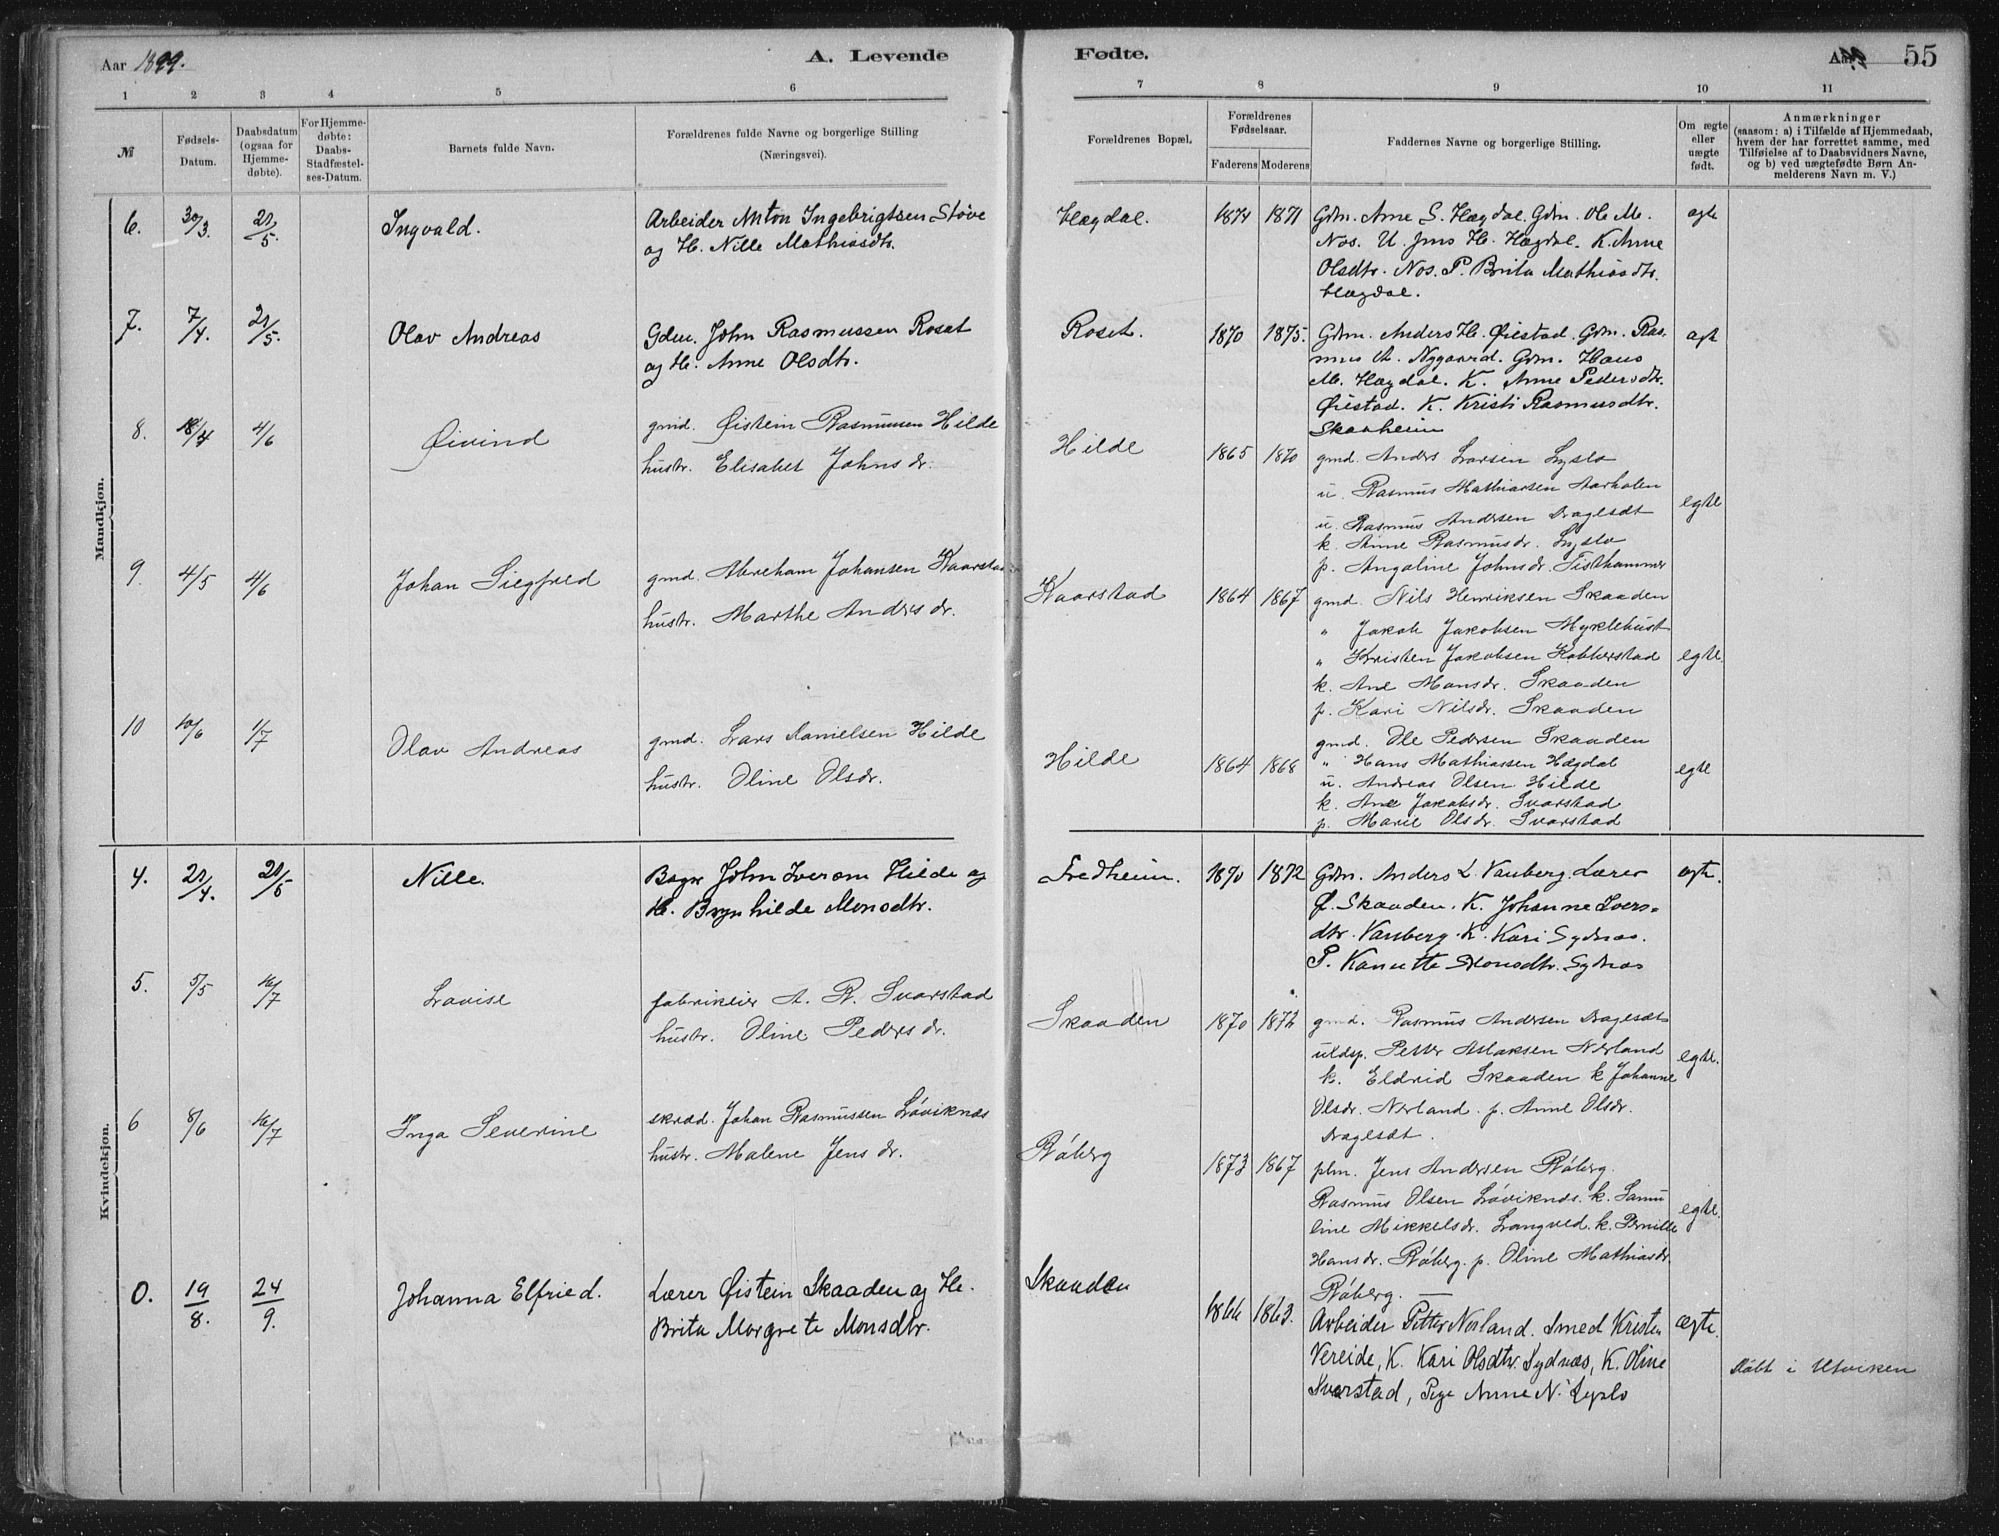 Aar 1899.
A. Levende
Fødte.
55
1 2 3 4 5 6 7 8 9 10 11
№
Fødsels-Datum.
Daabsdatum (ogsaa for Hjemme-døbte).
For Hjemme-døbte: Daabs-Stadfæstel-ses-Datum.
Barnets fulde Navn.
Forældrenes fulde Navne og borgerlige Stilling
(Næringsvei).
Forældrenes Bopæl.
Forældrenes Fødselsaar.
Faderens Moderens
Faddernes Navne og borgerlige Stilling.
Om ægte eller uægte født.
Anmærkninger
(saasom: a) i Tilfælde af Hjemmedaab,
hvem der har forrettet samme, med
Tilføielse af to Daabsvidners Navne,
og b) ved uægtefødte Børn An-
melderens Navn m. V.)
Mandkjøn.
6. 30/3. 21/5. Ingvald.
Arbeider Anton Ingebrigtsen Støve
og H. Nille Mathiasdtr.
Hægdal. 1874 1871
Gdm. Arne S. Hægdal. Gdm. Ole M.
Nos. U. Jens H. Hægdal. K. Anne
Olsdtr. Nos. P. Brita Mathiasdtr.
Hægdal.
ægte
7. 7/4. 21/5. Olav Andreas
Gdm. John Rasmussen Roset
og H. Anne Olsdtr.
Roset. 1870 1875.
Gdm. Anders H. Øiestad. Gdm. Ras-
mus A. Nygaard. Gdm. Hans
M. Hægdal. K. Anne Pedersdtr.
Øiestad. K. Kristi Rasmusdtr.
Skaaheim
ægte
8. 18/4 4/6 Øivind
gmd. Øistein Rasmussen Hilde
hustr. Elisabet Johnsdr.
Hilde 1865 1870
gmd. Anders Larsen Lyslo
u. Rasmus Mathiassen Aarholen
u. Rasmus Andersen Dragesæt
k. Anne Rasmusdr. Lyslo
p. Angoline Johnsdr. Fisthammer
egte
9 4/5 4/6 Johan Siegfred
gmd. Abreham Johansen Kaarstad
hustr. Marthe Andersdr.
Kaarstad 1864 1867
gmd. Nils Henriksen Skaaden
" Jakob Jakobsen Myklebust
" Kristen Jakobsen Kobberstad
k. Ane Monsdr. Skaaden
p. Kari Nilsdr. Skaaden
egte
10 10/6 1/7 Olav Andreas
gmd. Lars Danielsen Hilde
hustr. Oline Olsdr.
Hilde 1864 1868
gmd. Ole Pedersen Skaaden
" Hans Mathiassen Hægdal
u. Andreas Olsen Hilde
k. Ane Jakobsdr. Svarstad
p. Marie Olsdr. Svarstad
egte
Kvindekjøn.
4. 21/4. 21/5 Nille.
Bager John Iverson Hilde og
H. Brynhilde Monsdtr.
Fredheim. 1870 1872
Gdm. Anders L. Vanberg. Lærer
Ø. Skaaden. K. Johanne Ivers-
dtr. Vanberg. K. Kari Sydnæs.
P. Kanutte Monsdtr. Sydnæs
ægte.
5. 5/5 16/7 Lovise
fabrikeier A. R. Svarstad
hustr. Oline Pedersdr.
Skaaden 1870 1872
gmd. Rasmus Andersen Dragesæt
uldsp. Petter Maksen Nerland
k. Eldrid Skaaden k Johanne
Olsdr. Nerland. p. Anne Olsdr.
Dragesæt.
egte.
6 8/6 16/7 Inga Severine
skræd. Johan Rasmussen Løviknes
hustr. Malene Jensdr.
Røberg 1873 1867
plm. Jens Andersen Røberg.
Rasmus Olsen Løviknes. k. Samu
line Mikkelsdr. Langved. k. Pernille
Hansdr. Røberg. p. Oline Mathiasdr.
Røberg.
egte.
0. 19/8. 24/9. Johanna Elfried.
Lærer Øistein Skaaden og H.
Brita Margrete Monsdtr.
Skaaden 1866 1863.
Arbeider Petter Nerland. Smed Kristen
Vereide, K. Kari Olsdtr. Sydnæs, K. Oline
Svarstad, Pige Anne N. Lyslo
ægte.
Døbt i Utviken